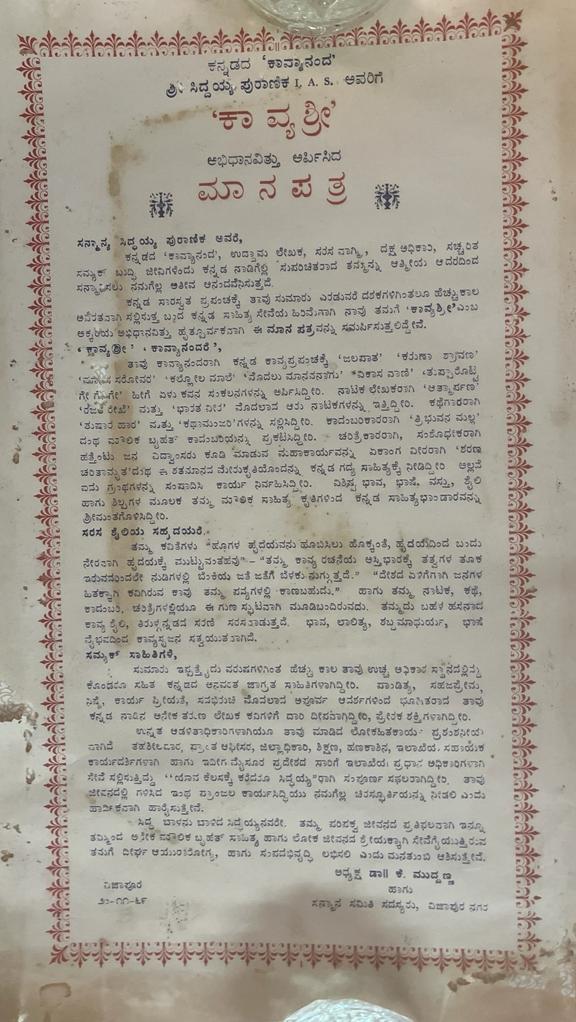 ಕನ್ನಡದ 'ಕಾವ್ಯಾನಂದ'
ಶ್ರೀ ಸಿದ್ದಯ್ಯ ಪುರಾಣಿಕ I. A. S. ಅವರಿಗೆ
'ಕಾವ್ಯಶ್ರೀ'
ಅಭಿಧಾನವಿತ್ತು ಅರ್ಪಿಸಿದ
ಮಾನಪತ್ರ
ಸನ್ಮಾನ್ಯ ಸಿದ್ದಯ್ಯ ಪುರಾಣಿಕ ಅವರೆ,
ಕನ್ನಡದ 'ಕಾವ್ಯಾನಂದ', ಉದ್ದಾಮ ಲೇಖಕ, ಸರಸ ವಾಗ್ಮಿ, ದಕ್ಷ ಅಧಿಕಾರಿ, ಸಚ್ಚರಿತ
ಸಮ್ಯಕ್ ಬುದ್ಧಿ ಜೀವಿಗಳೆಂದು ಕನ್ನಡ ನಾಡಿಗೆಲ್ಲ ಸುಪರಿಚಿತರಾದ ತಮ್ಮನ್ನು ಆತ್ಮೀಯ ಆದರದಿಂದ
ಸನ್ಮಾನಿಸಲು ನಮಗೆಲ್ಲ ಅತೀವ ಆನಂದವೆನಿಸುತ್ತದೆ.
ಕನ್ನಡ ಸಾರಸ್ವತ ಪ್ರಪಂಚಕ್ಕೆ ತಾವು ಸುಮಾರು ಎರಡುವರೆ ದಶಕಗಳಿಗಿಂತಲೂ ಹೆಚ್ಚು ಕಾಲ
ಅನವರತವಾಗಿ ಸಲ್ಲಿಸುತ್ತ ಬಂದ ಕನ್ನಡ ಸಾಹಿತ್ಯ ಸೇವೆಯ ಹಿರಿಮೆಗಾಗಿ ನಾವು ತಮಗೆ 'ಕಾವ್ಯಶ್ರೀ' ಎಂಬ
ಅಕ್ಕರೆಯ ಅಭಿಧಾನವಿತ್ತು ಹೃತ್ಪೂರ್ವಕವಾಗಿ ಈ ಮಾನ ಪತ್ರವನ್ನು ಸಮರ್ಪಿಸುತ್ತಲಿದ್ದೇವೆ.
'ಕಾವ್ಯಶ್ರೀ' 'ಕಾವ್ಯಾನಂದರೆ',
ತಾವು ಕಾವ್ಯಾನಂದರಾಗಿ ಕನ್ನಡ ಕಾವ್ಯಪ್ರಪಂಚಕ್ಕೆ 'ಜಲಪಾತ' 'ಕರುಣಾ ಶ್ರಾವಣ'
'ಮಾನಸ ಸರೋವರ' 'ಕಲ್ಲೋಲ ಮಾಲೆ' 'ಮೊದಲು ಮಾನವನಾಗು' 'ವಿಕಾಸ ವಾಣಿ' 'ತುಪ್ಪಾರೊಟ್ಟಿ
ಗೇ ಗೇ ಗೇ' ಹೀಗೆ ಏಳು ಕವನ ಸಂಕಲನಗಳನ್ನು ಅರ್ಪಿಸಿದ್ದೀರಿ. ನಾಟಕ ಲೇಖಕರಾಗಿ 'ಆತ್ಮಾರ್ಪಣ'
'ರಜತ ರೇಖೆ' ಮತ್ತು 'ಭಾರತ ವೀರ' ಮೊದಲಾದ ಆರು ನಾಟಕಗಳನ್ನು ಇತ್ತಿದ್ದೀರಿ. ಕಥೆಗಾರರಾಗಿ
'ತುಷಾರ ಹಾರ' ಮತ್ತು 'ಕಥಾಮಂಜರಿ'ಗಳನ್ನು ಸಲ್ಲಿಸಿದ್ದೀರಿ. ಕಾದಂಬರಿಕಾರರಾಗಿ 'ತ್ರಿಭುವನ ಮಲ್ಲ'
ದಂಥ ಮೌಲಿಕ ಬೃಹತ್ ಕಾದಂಬರಿಯನ್ನು ಪ್ರಕಟಿಸಿದ್ದೀರಿ. ಚರಿತ್ರೆಕಾರರಾಗಿ, ಸಂಶೋಧಕರಾಗಿ
ಹತ್ತೆಂಟು ಜನ ವಿದ್ವಾಂಸರು ಕೂಡಿ ಮಾಡುವ ಮಹಾಕಾರ್ಯವನ್ನು ಏಕಾಂಗ ವೀರರಾಗಿ 'ಶರಣ
ಚರಿತಾಮೃತ'ದಂಥ ಈ ಶತಮಾನದ ಮೇರುಕೃತಿಯೊಂದನ್ನು ಕನ್ನಡ ಗದ್ಯ ಸಾಹಿತ್ಯಕ್ಕೆ ನೀಡಿದ್ದೀರಿ ಅಲ್ಲದೆ
ಐದು ಗ್ರಂಥಗಳನ್ನು ಸಂಪಾದಿಸಿ ಕಾರ್ಯ ನಿರ್ವಹಿಸಿದ್ದೀರಿ. ವಿಶಿಷ್ಟ ಭಾವ, ಭಾಷೆ, ವಸ್ತು, ಶೈಲಿ
ಹಾಗು ಶಿಲ್ಪಗಳ ಮೂಲಕ ತಮ್ಮ ಮೌಲಿಕ ಸಾಹಿತ್ಯ ಕೃತಿಗಳಿಂದ ಕನ್ನಡ ಸಾಹಿತ್ಯಭಾಂಡಾರವನ್ನು
ಶ್ರೀಮಂತಗೊಳಿಸಿದ್ದೀರಿ.
ಸರಸ ಶೈಲಿಯ ಸಹೃದಯರೆ.
ತಮ್ಮ ಕವಿತೆಗಳು "ಹೂಗಳ ಹೃದಯವನು ಹೂಬಿಸಿಲು ಹೊಕ್ಕಂತೆ, ಹೃದಯದಿಂದ ಬಂದು
ನೇರವಾಗಿ ಹೃದಯಕ್ಕೆ ಮುಟ್ಟುವಂತಹವು"–"ತಮ್ಮ ಕಾವ್ಯ ರಚನೆಯ ಅಸ್ತಿಭಾರಕ್ಕೆ ತತ್ವಗಳ ತೂಕ
ಇರುವದರಿಂದಲೇ ನುಡಿಗಳಲ್ಲಿ ಬೆಂಕಿಯ ಜತೆ ಜತೆಗೆ ಬೆಳಕು ನುಗ್ಗುತ್ತದೆ." "ದೇಶದ ಏಳಿಗೆಗಾಗಿ ಜನಗಳ
ಹಿತಕ್ಕಾಗಿ ಕವಿಗಿರುವ ಕಾವು ತಮ್ಮ ಪದ್ಯಗಳಲ್ಲಿ ಕಾಣಬಹುದು." ಹಾಗು ತಮ್ಮ ನಾಟಕ, ಕಥೆ,
ಕಾದಂಬರಿ, ಚರಿತ್ರೆಗಳಲ್ಲಿಯೂ ಈ ಗುಣ ಸ್ಫುಟವಾಗಿ ಮೂಡಿಬಂದಿರುವದು. ತಮ್ಮದು ಬಹಳ ಹಸನಾದ
ಕಾವ್ಯ ಶೈಲಿ, ತಿರುಳ್ಗನ್ನಡದ ಸರಣಿ ಸರಸವಾಡುತ್ತದೆ. ಭಾವ, ಲಾಲಿತ್ಯ, ಶಬ್ದಮಾಧುರ್ಯ, ಭಾಷೆ
ವೈಭವದಿಂದ ಕಾವ್ಯಸೃಜನ ಸತ್ವಯುತವಾಗಿದೆ.
ಸಮ್ಯಕ್ ಸಾಹಿತಿಗಳೆ,
ಸುಮಾರು ಇಪ್ಪತ್ತೈದು ವರುಷಗಳಿಗಿಂತ ಹೆಚ್ಚು ಕಾಲ ತಾವು ಉಚ್ಚ ಅಧಿಕಾರ ಸ್ಥಾನದಲ್ಲಿದ್ದು
ಕೊಂಡರೂ ಸಹಿತ ಕನ್ನಡದ ಅನವರತ ಜಾಗ್ರತ ಸಾಹಿತಿಗಳಾಗಿದ್ದೀರಿ. ಪಾಂಡಿತ್ಯ, ಸಹಜಪ್ರೇಮ,
ನಿಷ್ಠೆ, ಕಾರ್ಯ ಶ್ರೀಯತೆ, ಸದಭಿರುಚಿ ಮೊದಲಾದ ಅಪೂರ್ವ ಆದರ್ಶಗಳಿಂದ ಭೂಷಿತರಾದ ತಾವು
ಕನ್ನಡ ನಾಡಿನ ಅನೇಕ ತರುಣ ಲೇಖಕ ಕವಿಗಳಿಗೆ ದಾರಿ ದೀಪವಾಗಿದ್ದೀರಿ, ಪ್ರೇರಕ ಶಕ್ತಿಗಳಾಗಿದ್ದೀರಿ.
ಉನ್ನತ ಆಡಳಿತಾಧಿಕಾರಿಗಳಾಗಿಯೂ ತಾವು ಮಾಡಿದ ಲೋಕಹಿತಕಾರ್ಯ ಪ್ರಶಂಶನೀಯ
ವಾಗಿದೆ ತಹಶೀಲದಾರ, ಪ್ರಾಂತ ಆಫೀಸರ, ಜಿಲ್ಲಾಧಿಕಾರಿ, ಶಿಕ್ಷಣ, ಹಣಕಾಶಿನ, ಇಲಾಖೆಯ ಸಹಾಯಕ
ಕಾರ್ಯದರ್ಶಿಗಳಾಗಿ ಹಾಗು ಇದೀಗ ಮೈಸೂರ ಪ್ರದೇಶದ ಸಾರಿಗೆ ಇಲಾಖೆಯ ಪ್ರಧಾನ ಅಧಿಕಾರಿಗಳಾಗಿ
ಸೇವೆ ಸಲ್ಲಿಸುತ್ತಿದ್ದು "ಯಾವ ಕೆಲಸಕ್ಕೆ ಕರೆದರೂ ಸಿದ್ದಯ್ಯ"ರಾಗಿ ಸಂಪೂರ್ಣ ಸಫಲರಾಗಿದ್ದೀರಿ. ತಾವು
ಜೀವನದಲ್ಲಿ ಗಳಿಸಿದ ಇಂಥ ಪ್ರಾಂಜಲ ಕಾರ್ಯಸಿದ್ಧಿಯು ನಮಗೆಲ್ಲ ಚಿರಸ್ಫೂರ್ತಿಯನ್ನು ನೀಡಲಿ ಎಂದು
ಹಾರ್ದಿಕವಾಗಿ ಹಾರೈಸುತ್ತೇವೆ.
ಸಿದ್ಧ ಬಾಳನು ಬಾಳಿದ ಸಿದ್ದಯ್ಯನವರೇ. ತಮ್ಮ ಪರಿಪಕ್ವ ಜೀವನದ ಪ್ರತಿಫಲವಾಗಿ ಇನ್ನೂ
ತಮ್ಮಿಂದ ಅನೇಕ ಮೌಲಿಕ ಬೃಹತ್ ಸಾಹಿತ್ಯ ಹಾಗು ಲೋಕ ಜೀವನದ ಶ್ರೇಯಕ್ಕಾಗಿ ಸೇವೆಗೈಯುತ್ತಿರುವ
ತಮಗೆ ದೀರ್ಘ ಆಯುರಾರೋಗ್ಯ, ಹಾಗು ಸಂಪದಭಿವೃದ್ಧಿ ಲಭಿಸಲಿ ಎಂದು ಮನತುಂಬಿ ಆಶಿಸುತ್ತೇವೆ.
ಅಧ್ಯಕ್ಷ ಡಾ॥ ಕೆ. ಮುದ್ದಣ್ಣ
ವಿಜಾಪೂರ
ಹಾಗು
೨೦-೧೧-೬೯
ಸನ್ಮಾನ ಸಮಿತಿ ಸದಸ್ಯರು, ವಿಜಾಪುರ ನಗರ